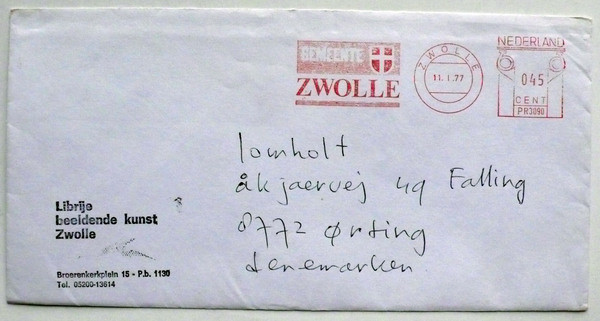 GEMEENTE
ZWOLLE
ZWOLLE
11.1.77
NEDERLAND
045
CENT
PR3090
lomholt
åkjaervej 49 Falling
8772 Ørting
denemarken
Librije
beeldende kunst
Zwolle
Broerenkerkplein 15 - P.b. 1130
Tel. 05200-13614